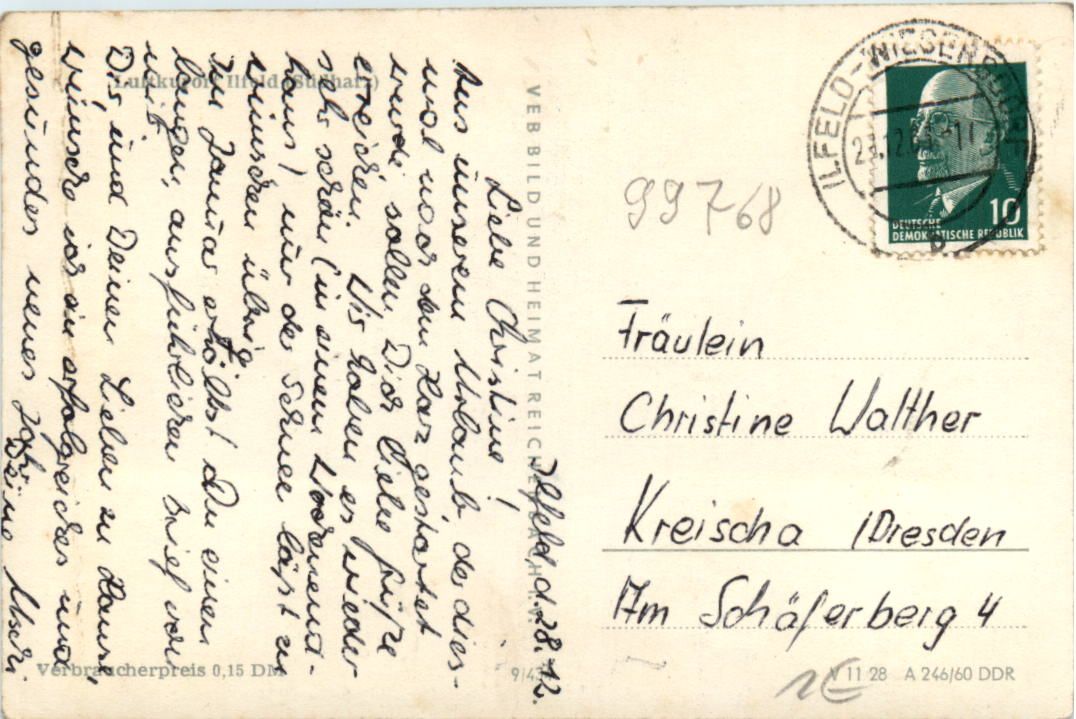 Luftkurort Ilfeld (Südharz)
Ilfeld, d. 28.12.
Liebe Christine!
Aus unserem Urlaub, der dies-
mal nach dem Harz gestartet
wurde, sollen Dich liebe Grüße
erreichen. Wir haben es wieder
sehr schön (in einem Wochenend-
haus) nur der Schnee läßt zu
wünschen übrig.
Im Januar erhältst Du einen
langen, ausführlichen Brief von
mir.
Dir, und Deinen Lieben zu Hause,
wünsche ich ein erfolgreiches und
gesundes neues Jahr
Deine
Verbraucherpreis 0,15 DM
VEB BILD UND HEIMAT REICHENBACH i. V.
ILFELD-WIEGERSDORF
10
DEUTSCHE
DEMOKRATISCHE REPUBLIK
99768
Fräulein
Christine Walther
Kreischa /Dresden
Am Schäferberg 4
V 11 28 A 246/60 DDR
1€